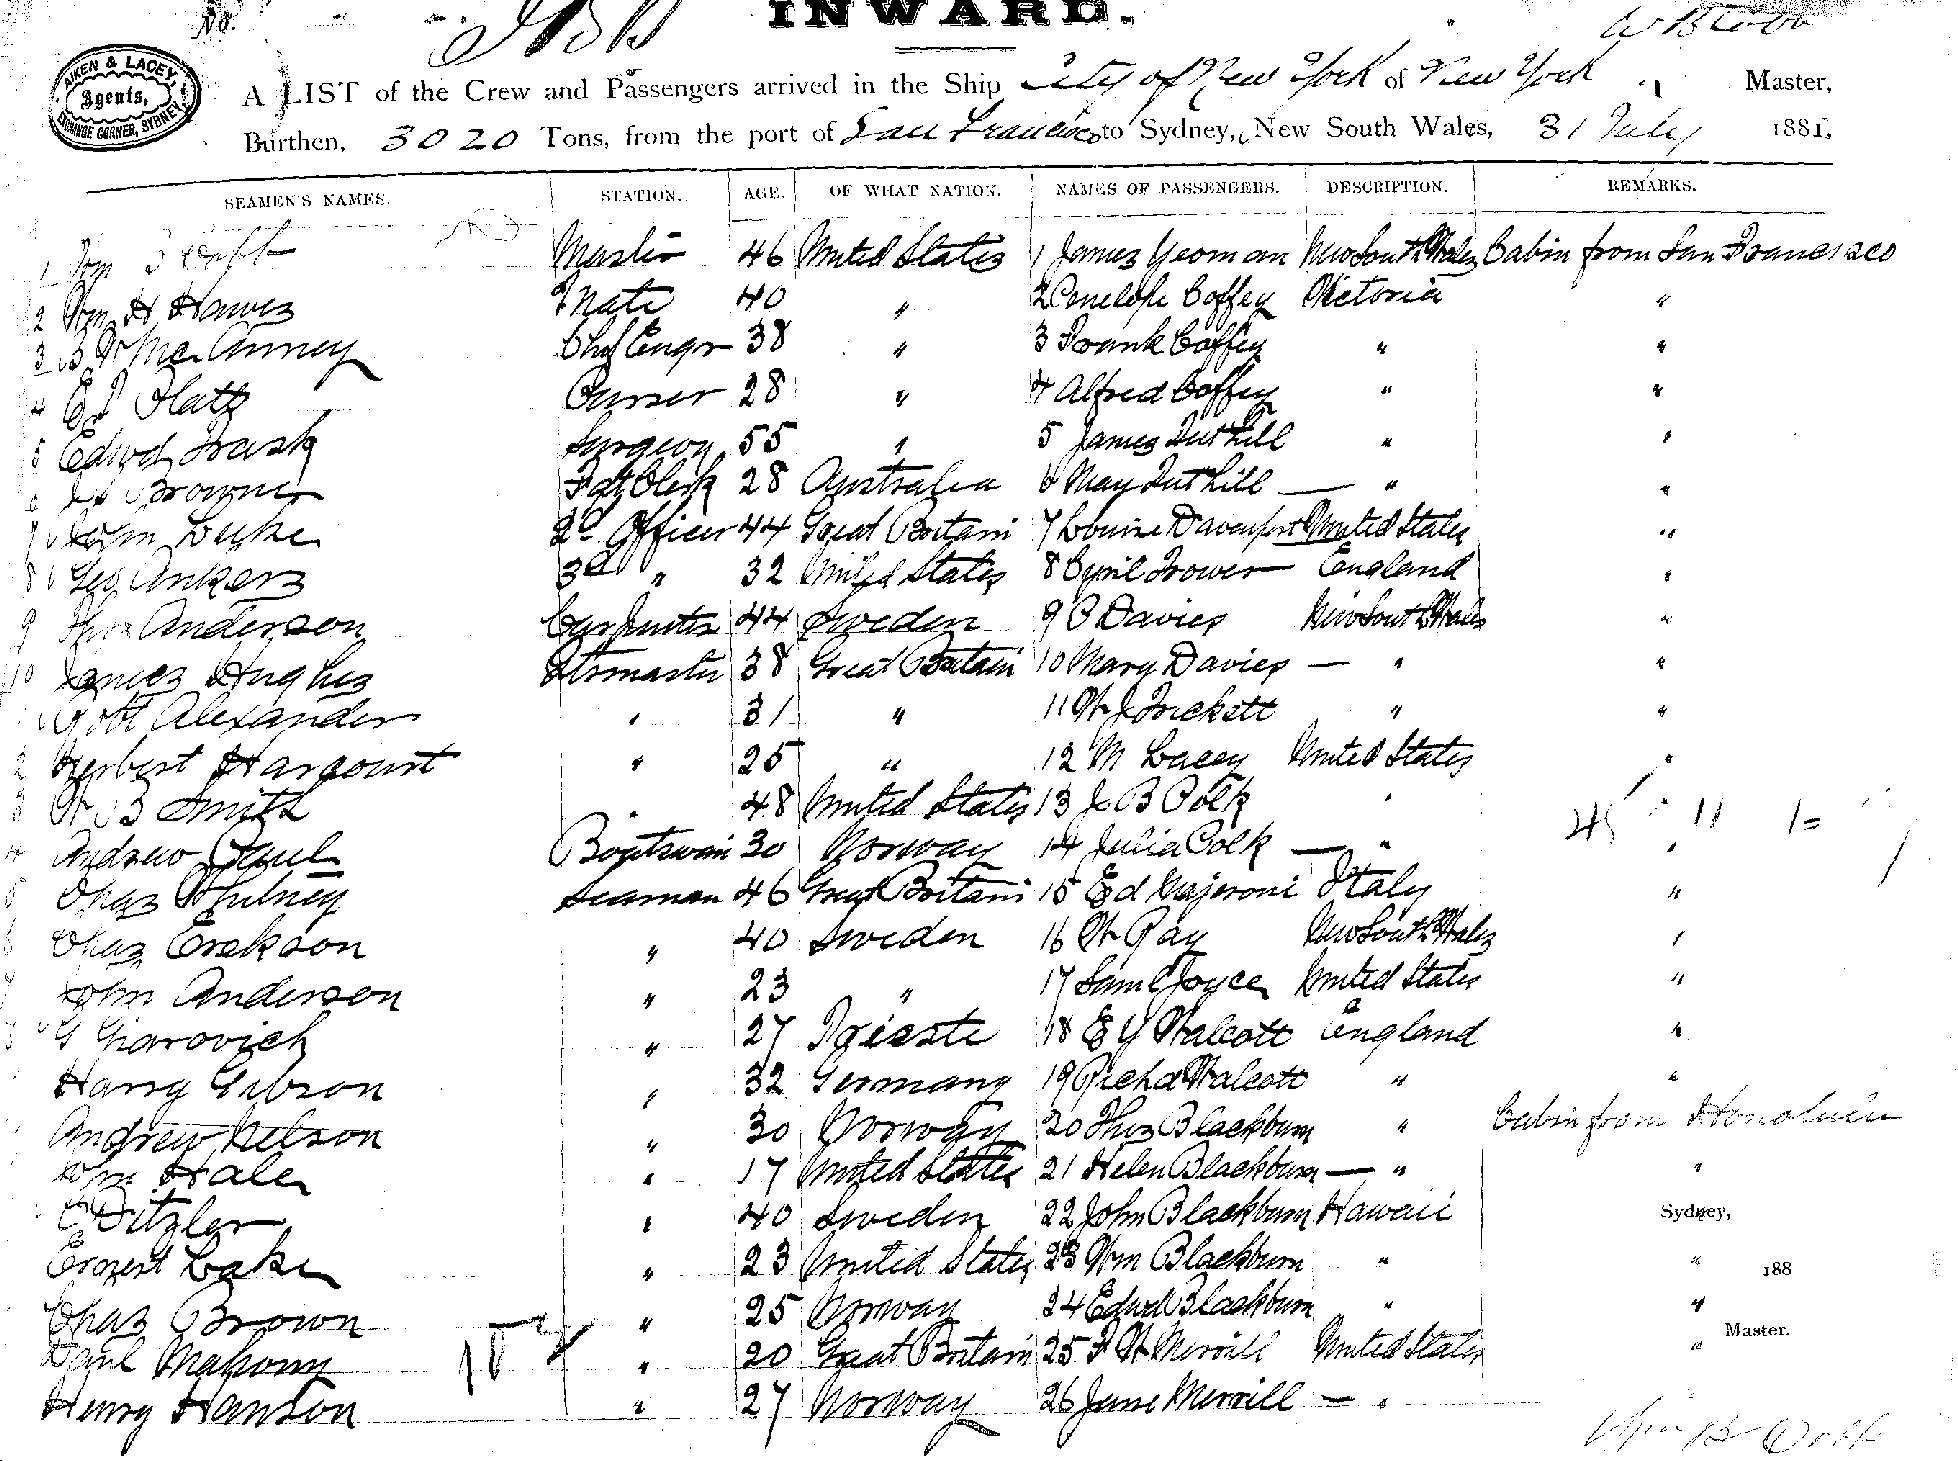 No.
INWARD.
AIKEN & LACEY,
Agents,
EXCHANGE CORNER, SYDNEY
A LIST of the Crew and Passengers arrived in the Ship City of New York of New York Master,
Burthen, 3020 Tons, from the port of San Francisco to Sydney, New South Wales, 31 July 1881,
SEAMEN'S NAMES. STATION. AGE. OF WHAT NATION. NAMES OF PASSENGERS. DESCRIPTION. REMARKS.
1 Wm B Cobb Master 46 United States 1 James Yeoman New South Wales Cabin from San Francisco
2 Wm H Hawes Mate 40 " 2 Penelope Coffey Victoria "
3 Mc Anney Chf Engr 38 " 3 Frank Coffey " "
4 Ed Platz Purser 28 " 4 Alfred Coffey " "
5 Edwd Trask Surgeon 55 " 5 James Tuthill " "
6 Browne Frt Clerk 28 Australia 6 May Tuthill — " "
7 John 2d Officer 44 Great Britain 7 Louise Davenport United States "
8 Geo Ankers 3d " 32 United States 8 Cyril Trower England "
9 Thos Anderson Carpenter 44 Sweden 9 P Davies New South Wales "
10 James Hughes Qtrmaster 38 Great Britain 10 Mary Davies — " "
Robt Alexander " 31 " 11 W J Trickett " "
2 Herbert Harcourt " 25 " 12 M Lacey United States "
3 W B Smith " 48 United States 13 J B Polk "
4 Andrew Paul Boatswain 30 Norway 14 Julia Polk — " "
5 Chas Seaman 46 Great Britain 15 Ed Majeroni Italy "
6 Chas Erekson " 40 Sweden 16 W Ray New South Wales "
John Anderson " 23 " 17 Saml Joyce United States "
G Giarovich " 27 Trieste 18 E Y Walcott England "
Harry Gibson " 32 Germany 19 Richd Walcott " "
Andrew Nelson " 30 Norway 20 Thos Blackburn " Cabin from Honolulu
Wm Hale " 17 United States 21 Helen Blackburn — " "
E Ditzler " 40 Sweden 22 John Blackburn Hawaii Sydney,
Ernest Lake " 23 United States 23 Wm Blackburn " " 188
Chas Brown " 25 Norway 24 Edwd Blackburn " "
Danl Mahony " 20 Great Britain 25 F W Merrill United States " Master.
Henry Hanson " 27 Norway 26 Jane Merrill — "
Wm B Cobb